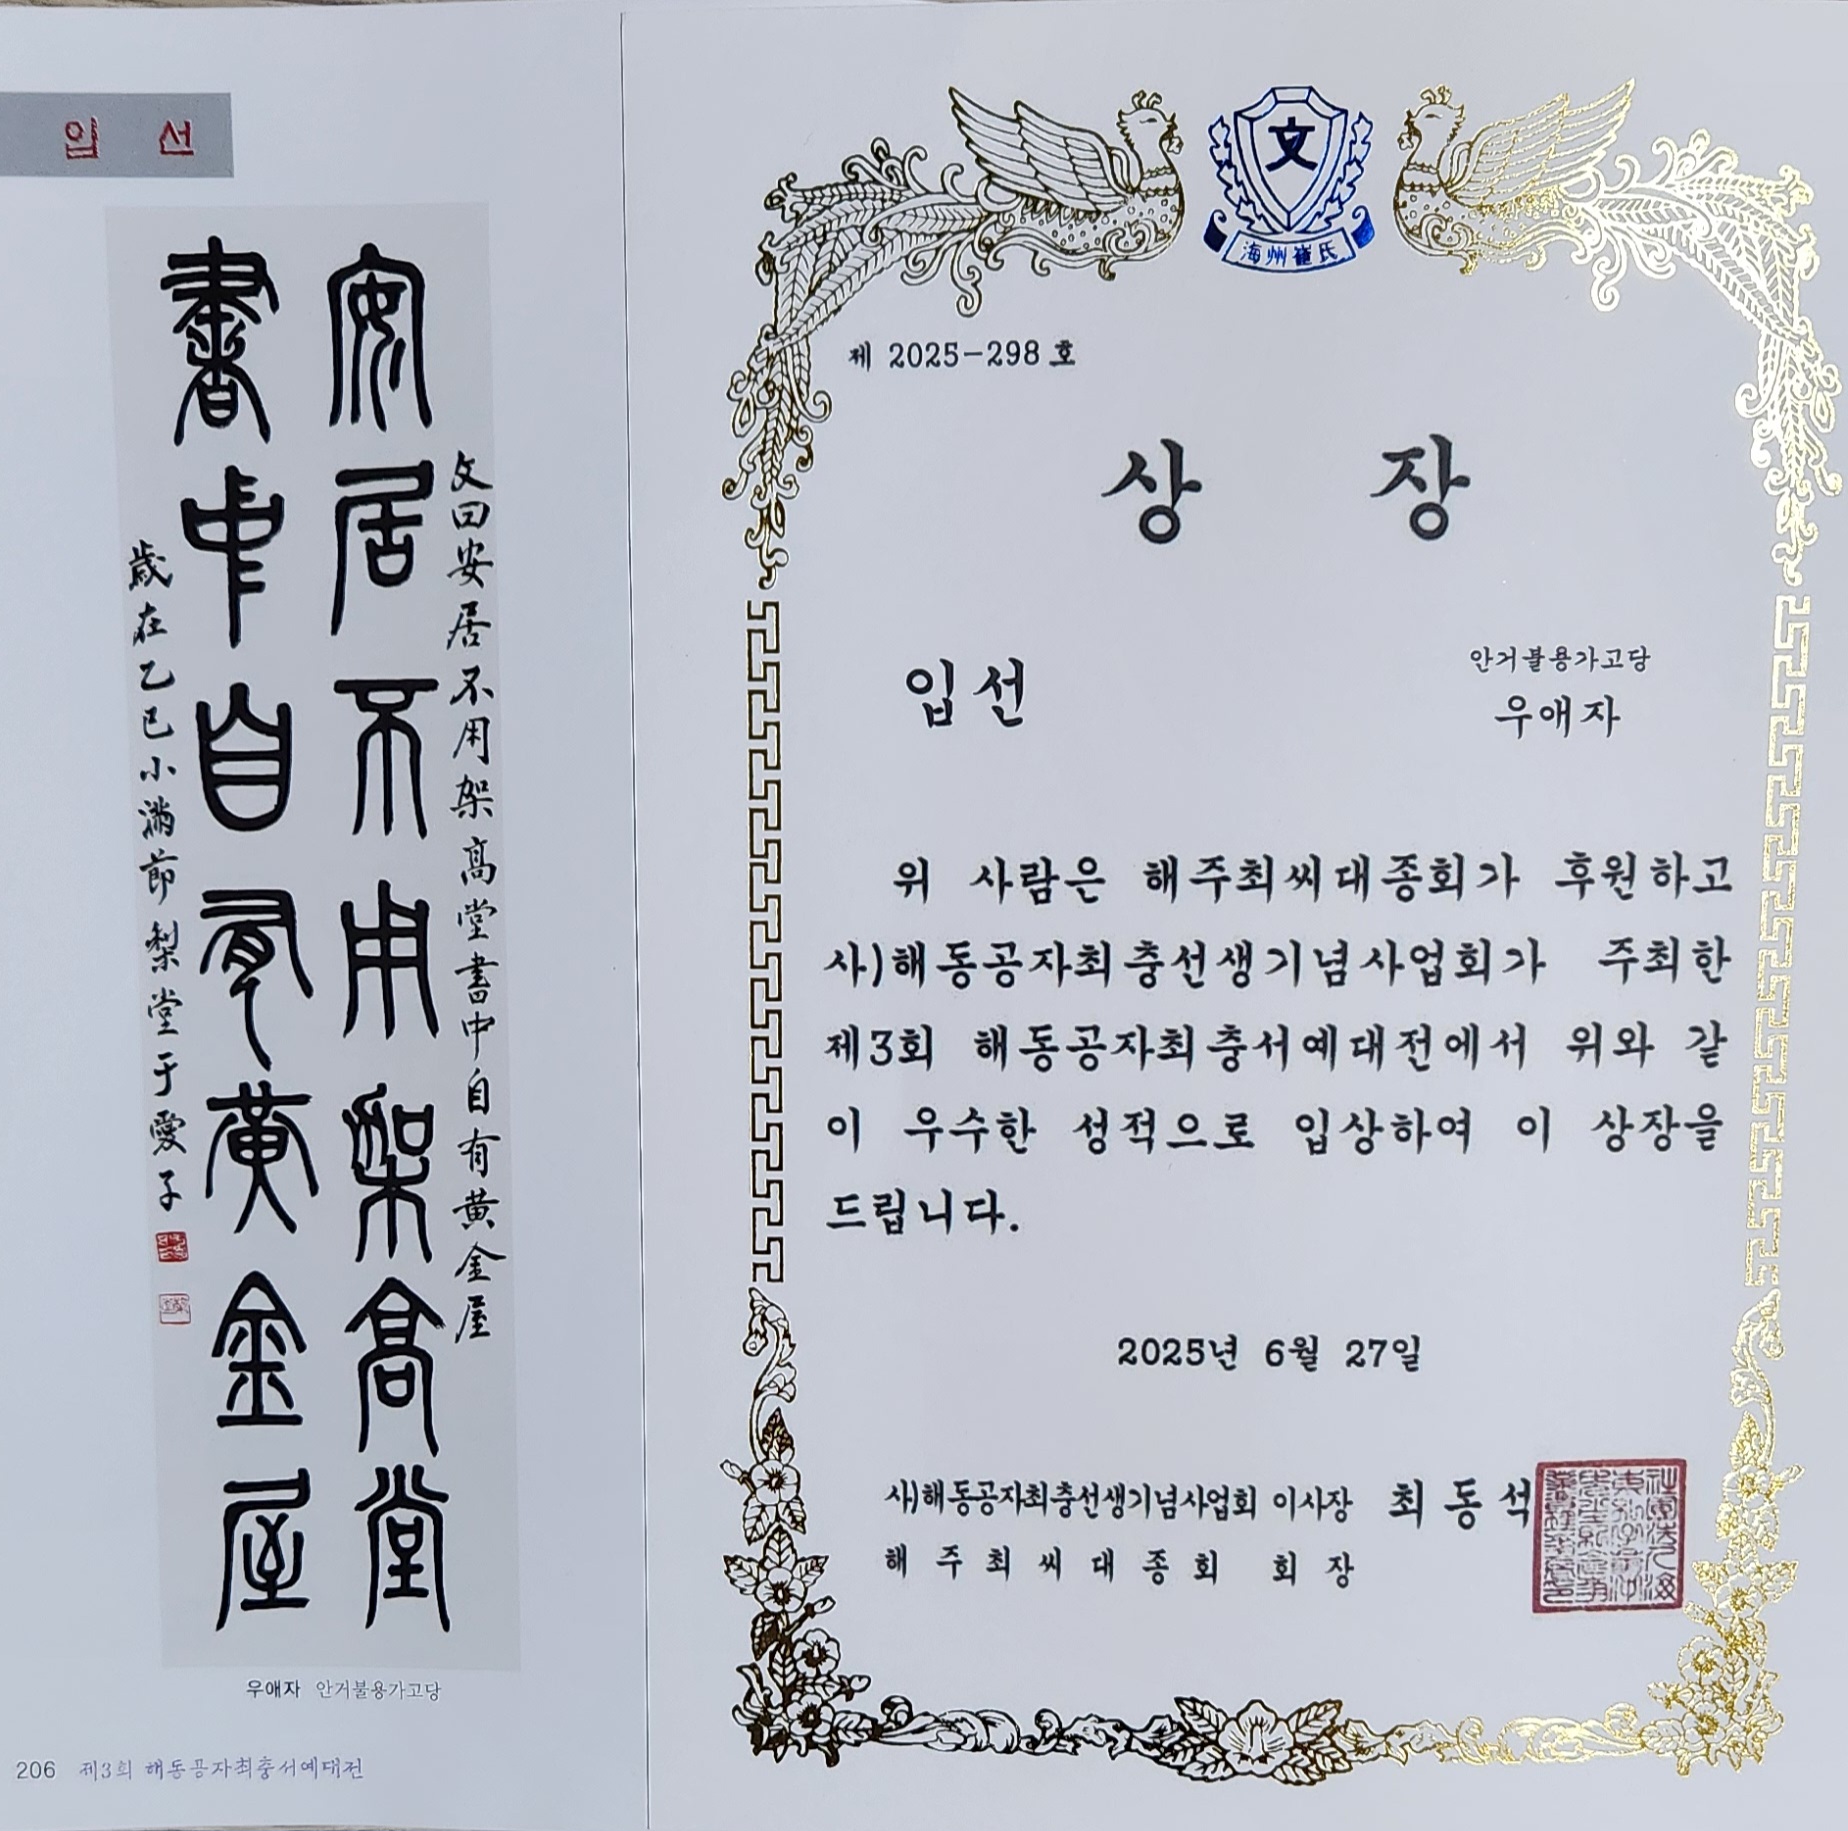 입 선
安居不用架高堂
書中自有黃金屋
文曰安居不用架高堂書中自有黃金屋
歲在乙巳小滿節梨堂于愛子
우애자 안거불용가고당
206 제3회 해동공자최충서예대전
文
海州崔氏
제 2025-298 호
상 장
안거불용가고당
입선 우애자
위 사람은 해주최씨대종회가 후원하고
사)해동공자최충선생기념사업회가 주최한
제3회 해동공자최충서예대전에서 위와 같
이 우수한 성적으로 입상하여 이 상장을
드립니다.
2025년 6월 27일
사)해동공자최충선생기념사업회 이사장 최동석
해주최씨대종회 회장